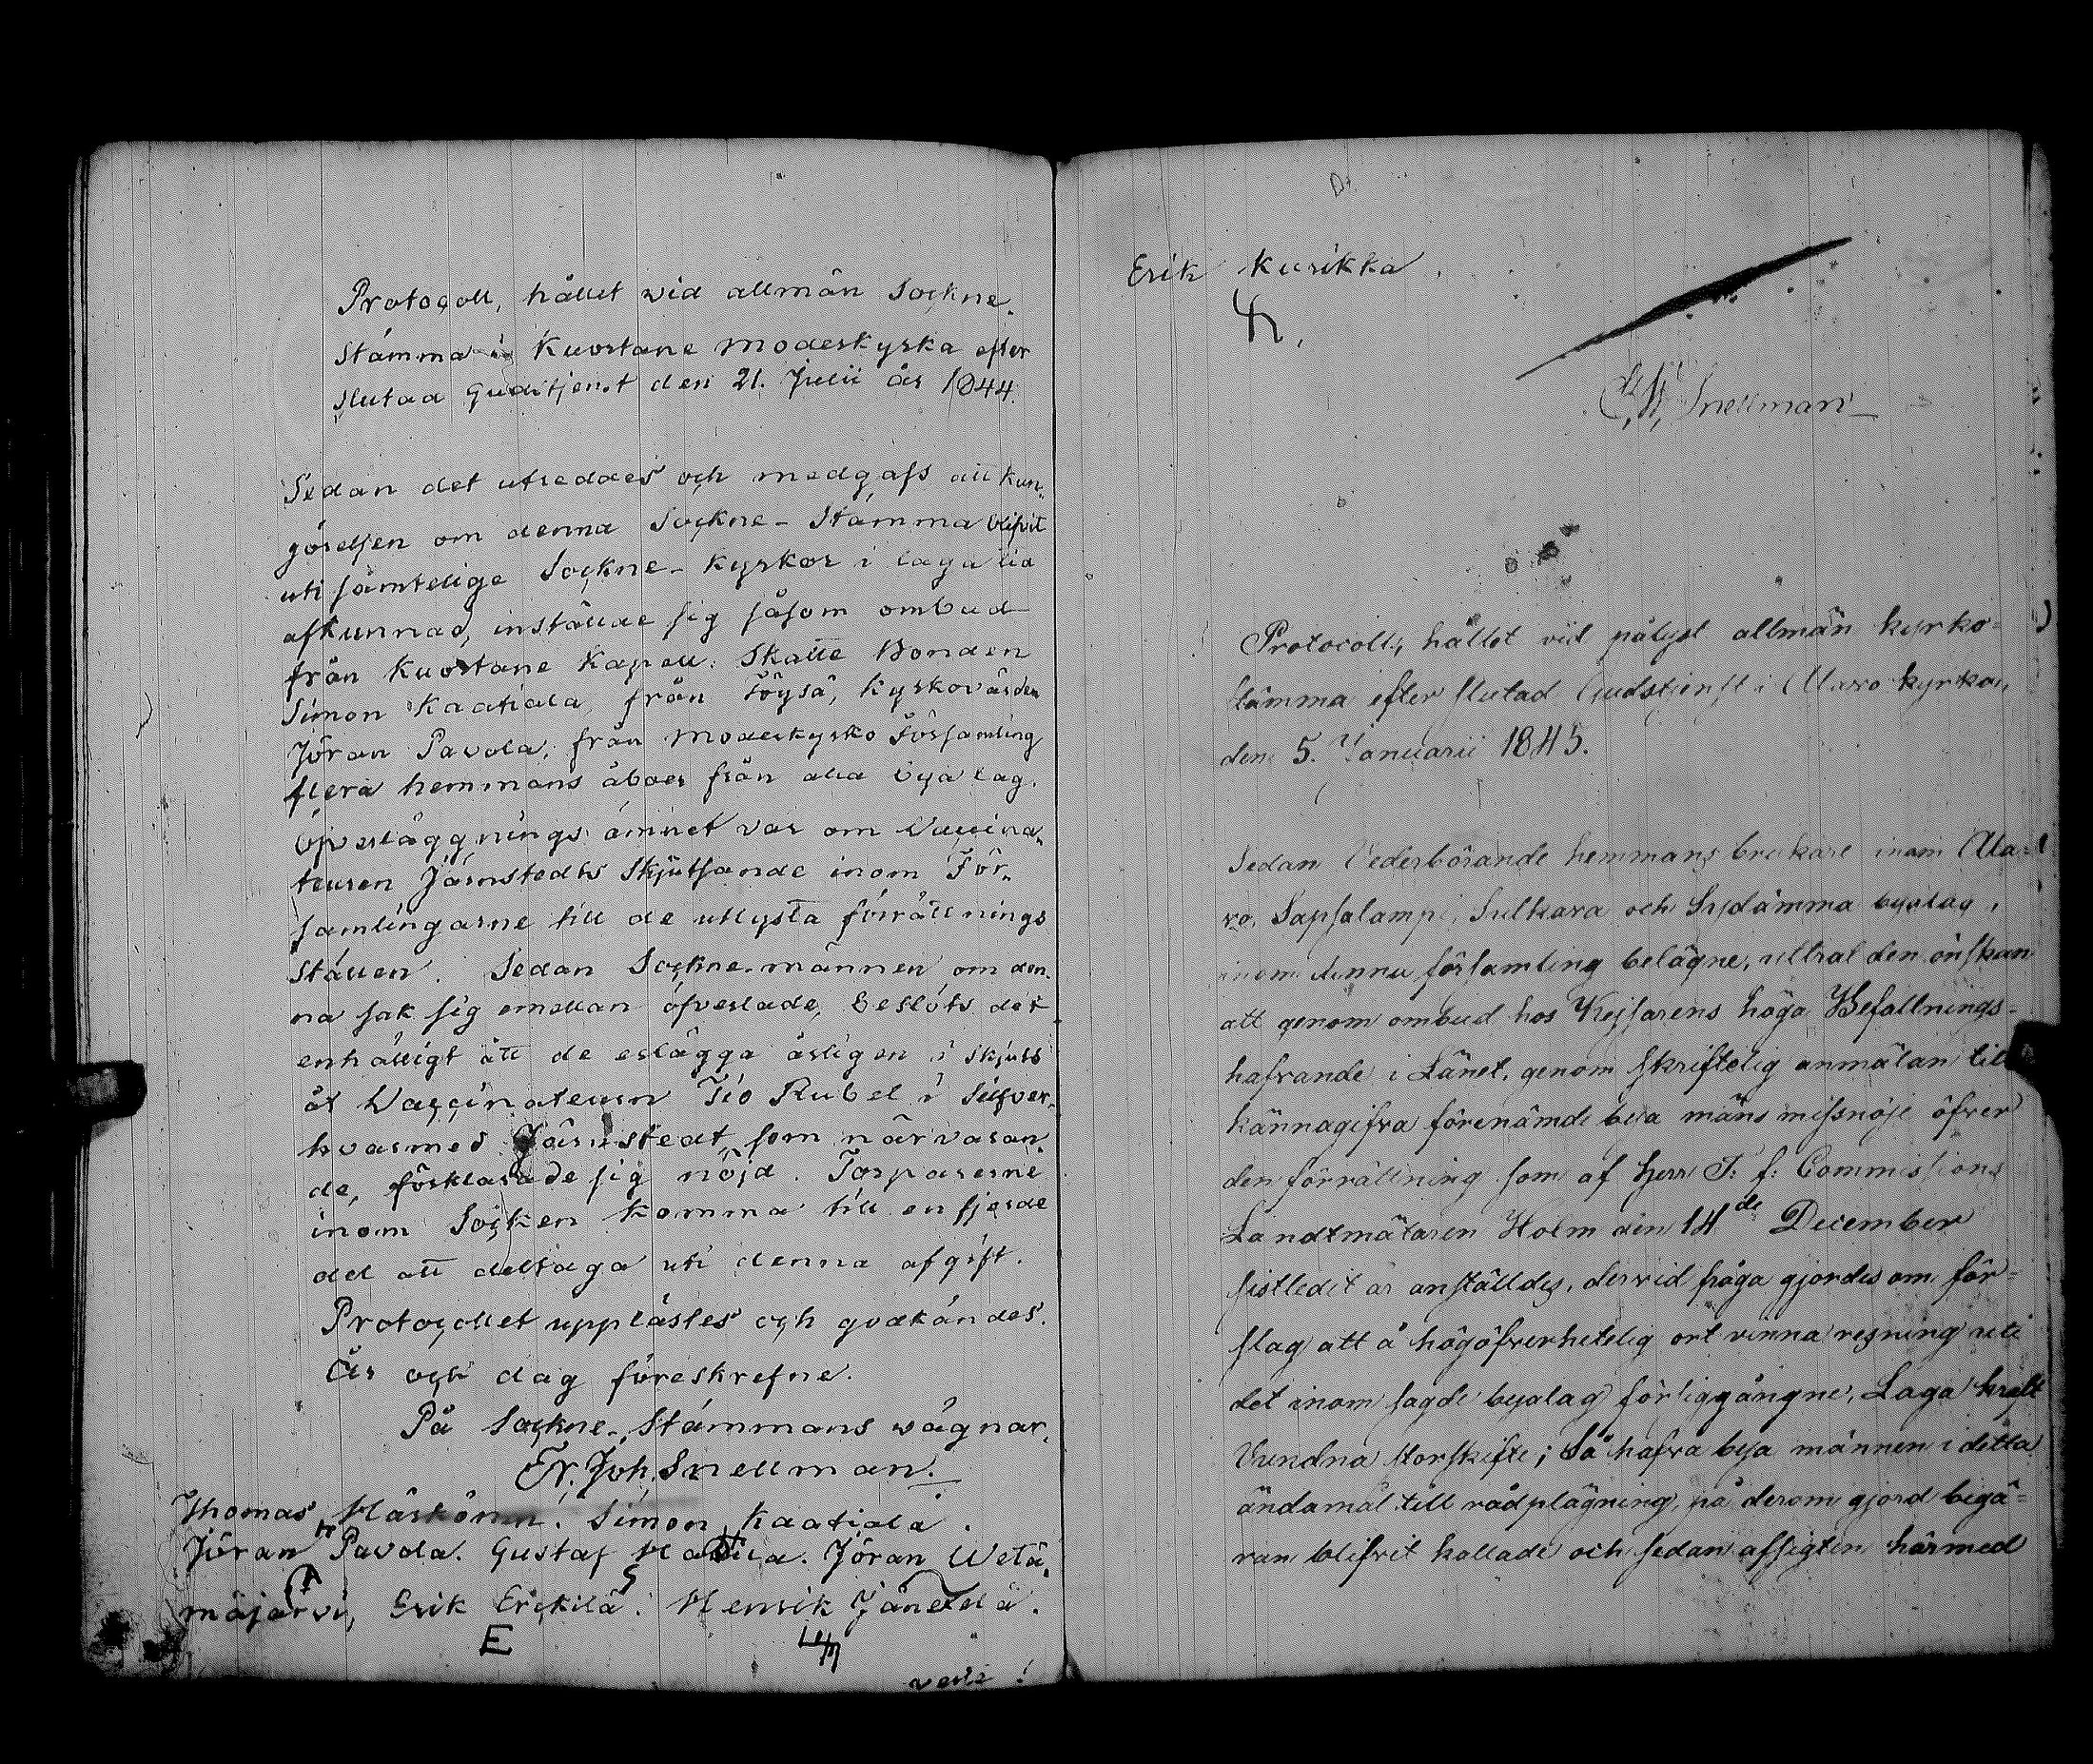 Protocoll, hållet vid allmän Sockne
Stämma i Kuortane Moderkyrka efter
slutad Gudstjenst den 21. Julii år 1844.
Sedan det utreddes och medgafs att kun-
görelsen om denna Sockne-Stämma blifvit
uti samtelige Sockne-Kyrkor i laga tid
afkunnad, inställde sig såsom ombud
från Kuortane Kapell: Skatte Bonden
Simon Kaatiala, från Töysä, Kyrkovärden
Jöran Pavola, från Moderkyrko Församling
flera hemmans åboer från alla byalag.
Öfverläggnings ämnet var om Vaccina-
teuren Järnstedts Skjutsande inom För-
samlingarne till de utlysta förrättnings
ställen. Sedan Sockne-männen om den-
na sak sig emellan öfverlade, beslöts det
enhälligt att de erlägga årligen i skjuts
åt Vaccinateuren Tio Rubel i Silfver,
hvarmed Järnstedt, som närvaran
de, förklarade sig nöjd. Torparerne
inom Socken komma till en fjerde
del att deltaga uti denna afgift.
Protocollet upplästes och godkändes.
År och dag föreskrefne.
På Sockne-Stämmans vägnar,
Er. Joh. Snellman.
Thomas Simon Kaatiala.
Jöran Pavola. Gustaf Jöran Wetä-
mäjärvi, Erik Erckilä. Henrik
E
verte!
Erik Kurikka
Snellman
Protocoll, hållet vid pålyst allmän kyrko-
stämma efter slutad Gudstjenst i Alavo kyrka,
den 5. Januarii 1845.
Sedan Vederbörande hemmans brukare inom Ala-
vo, Sapsalampi, Sulkava och Sydämma byalag,
inom denna församling belägne, uttrat den önskan
att genom ombud hos Kejsarens höga Befallnings-
hafvande i Länet, genom skriftelig anmälan till
kännagifva förenämde bya mäns missnöje öfver
den förrättning som af Herr T: f: Commissions
Landtmätaren Holm den 14de December
sistledit år anställdes, dervid fråga gjordes om för-
slag att å högöfverhetelig ort vinna resning uti
det inom sagde byalag förliggångne, Laga kraft
Vundna storskifte; Så hafva bya männen i detta
ändamål till rådplägning, på derom gjord begä-
ran blifvit kallade och sedan afsigten härmed